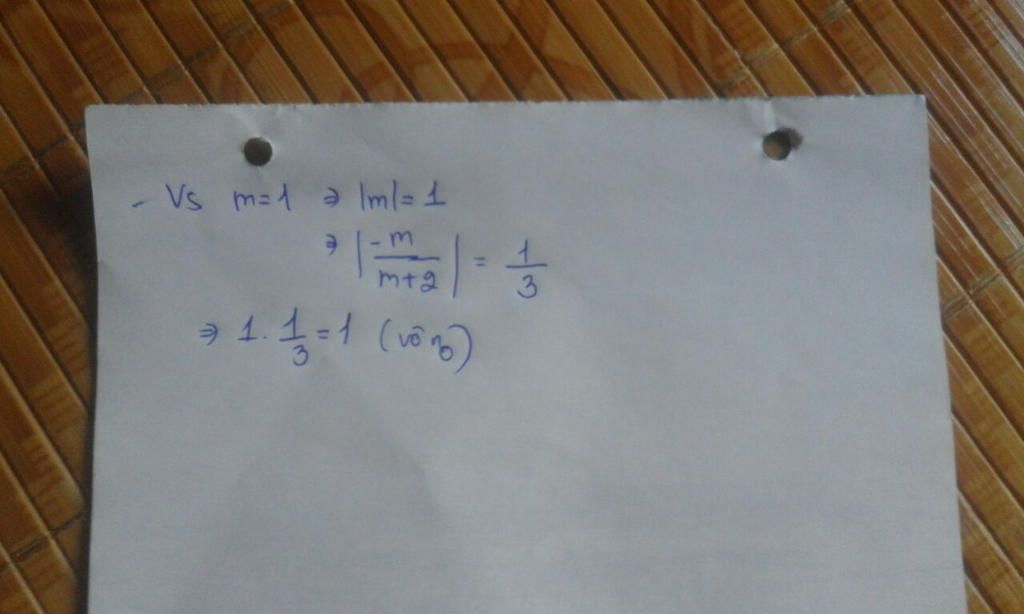 - Vs m=1 ⇒ |m|= 1
⇒ |-m/(m+2)| = 1/3
⇒ 1. 1/3 = 1 (vô no)